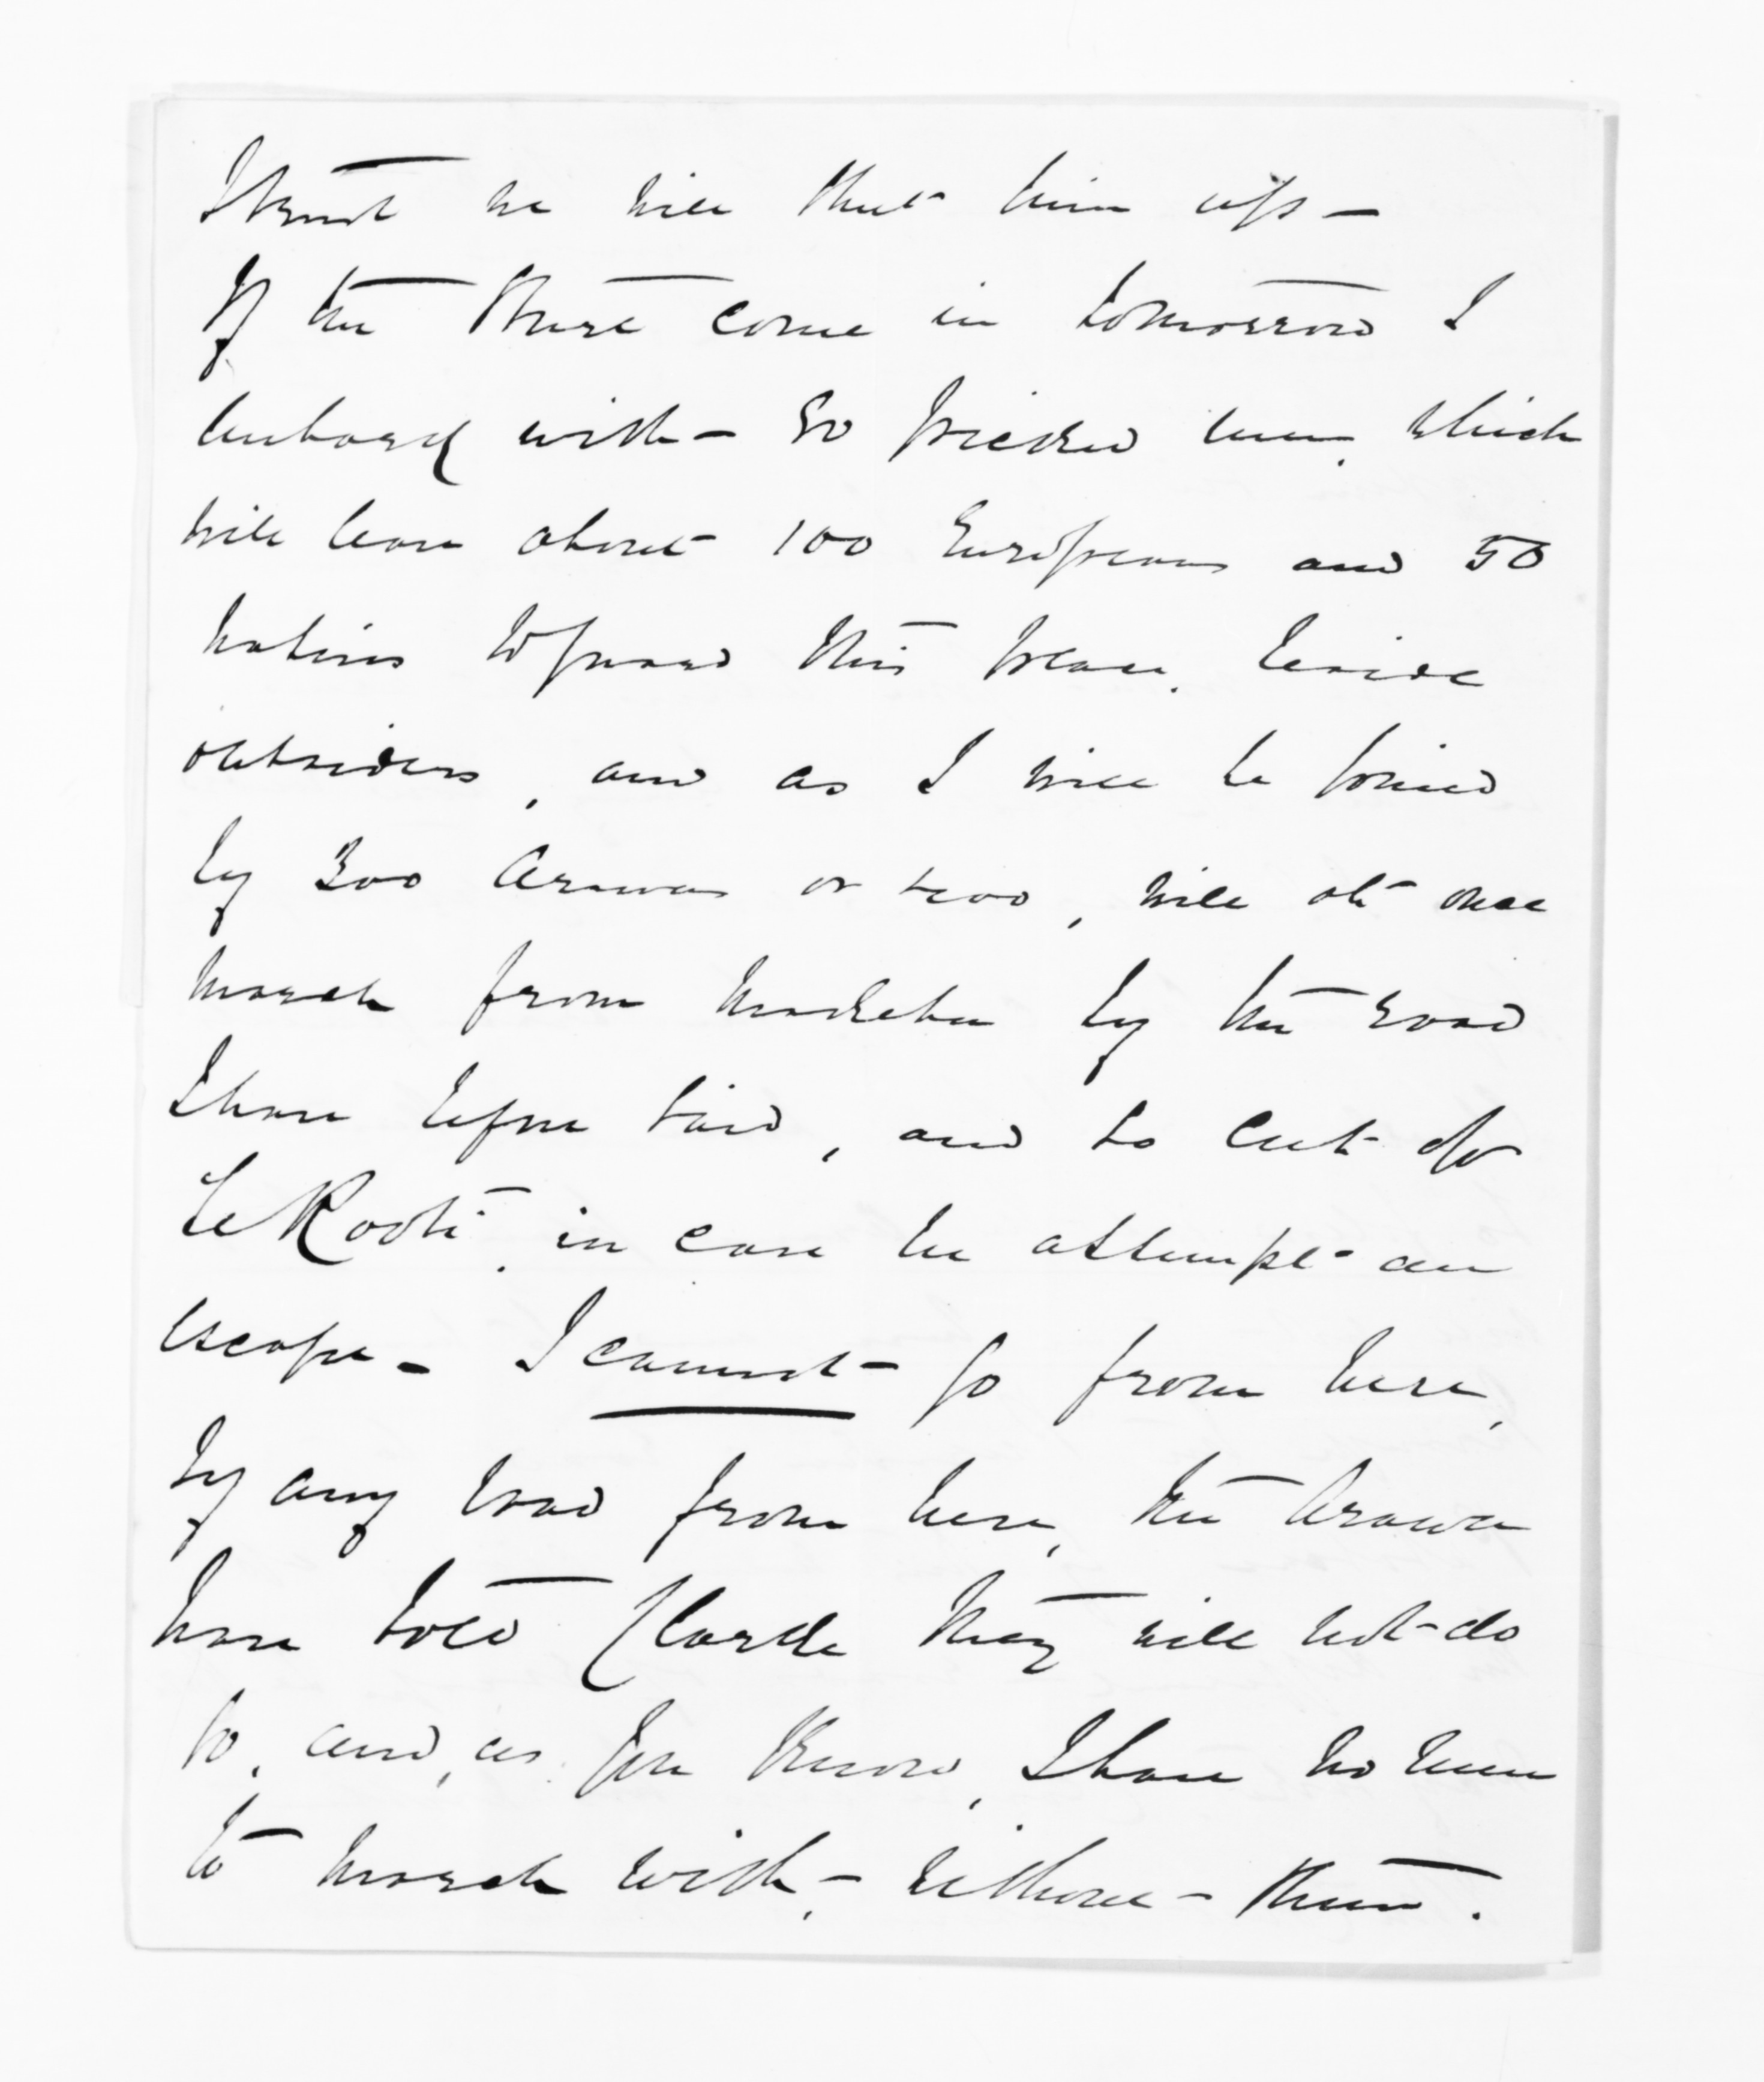 I trust we will shut him up —
If the Sturt come in tomorrow I
embark with 80 picked men, which
will leave about 100 Europeans and 50
natives to guard this place, beside
outsiders, and as I will be joined
by 300 Arawas or 400, will at once
march from Maketu by the road
I have before said, and so cut off
Te Kooti, in case he attempt an
escape — I cannot go from here,
by any road from here, the Arawa
have told Clarke they will not do
so, and, as you know, I have no men
to march with, — without them.